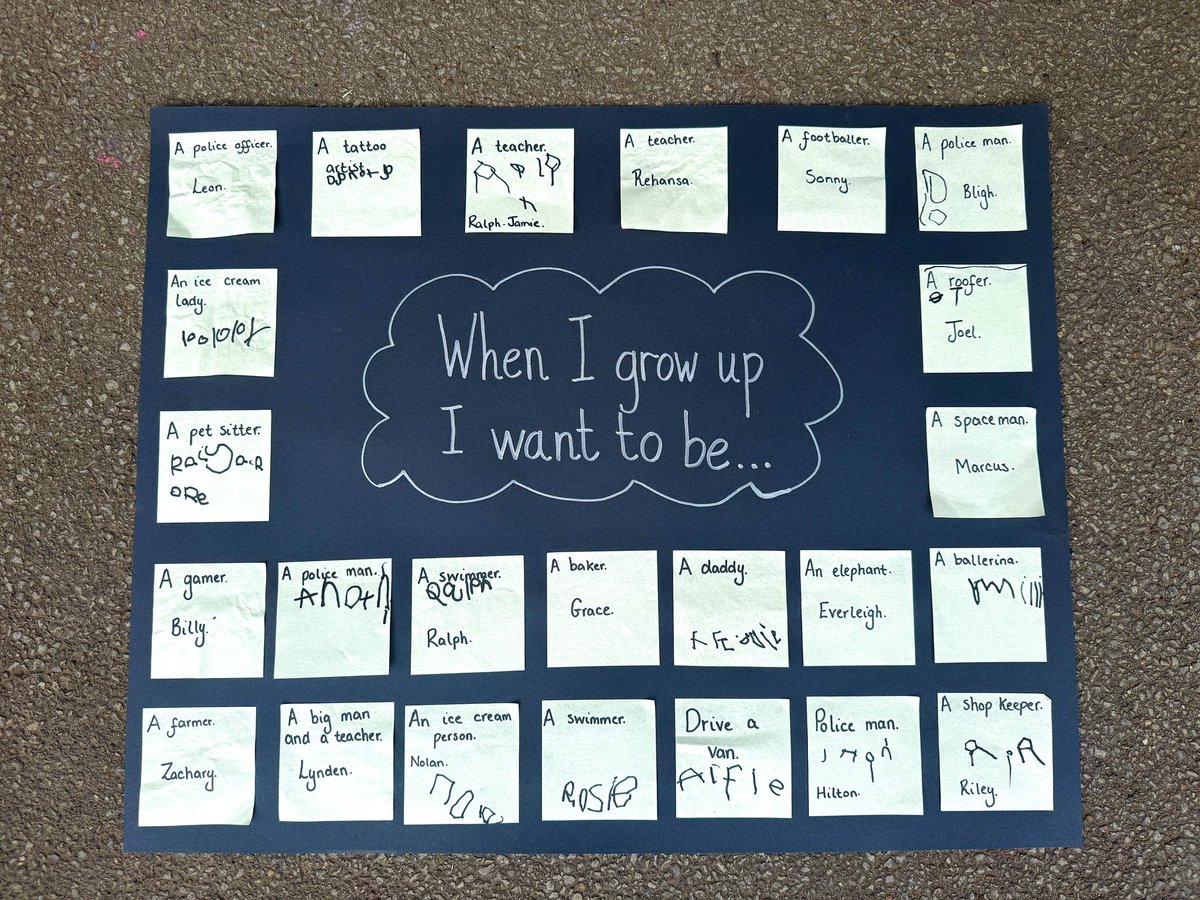 A police officer.
Leon.
A tattoo
artist
A teacher.
Ralph-Jamie.
A teacher.
Rehansa.
A footballer.
Sonny.
A police man.
Bligh.
An ice cream
lady.
When I grow up
I want to be...
A roofer.
Joel.
A pet sitter.
A space man.
Marcus.
A gamer.
Billy.
A police man.
A swimmer.
Ralph.
A baker.
Grace.
A daddy.
An elephant.
Everleigh.
A ballerina.
A farmer.
Zachary.
A big man
and a teacher.
Lynden.
An ice cream
person.
Nolan.
A swimmer.
ROSIE
Drive a
van.
Alfie
Police man.
Hilton.
A shop keeper.
Riley.